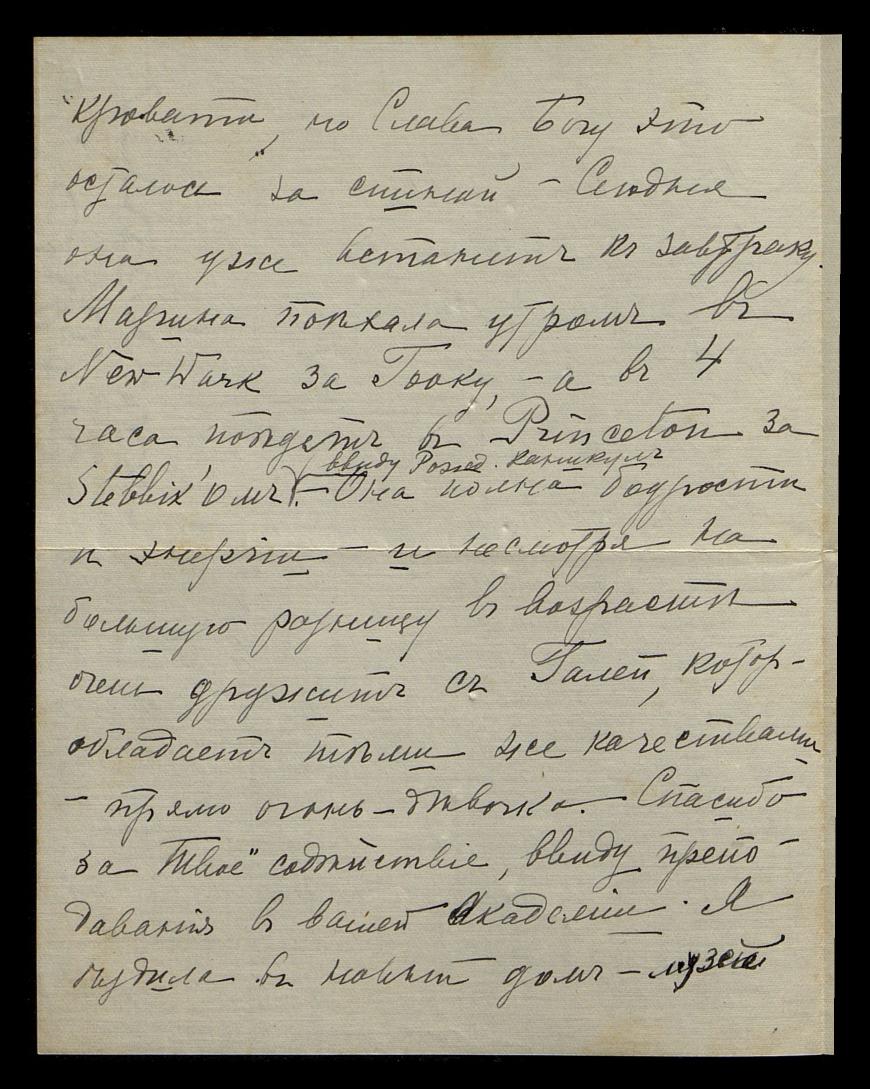 кровати, но Слава Богу это
осталось за спиной – Сегодня
она уже встанетъ къ завтраку.
Марина поѣхала утромъ въ
New Wark за Тооку, – а въ 4
часа поѣдетъ въ Princeton за
ввиду Рожд. каникулъ
Stebbix'омъ. – Она полна бодрости
и энергіи – и несмотря на
большую разницу въ возрастѣ
очень дружитъ съ Галей, котор-
обладаетъ тѣми же качествами
– прямо огонь – дѣвочка. Спасибо
за "Твоё" содѣйствіе, ввиду препо-
даванія въ вашей Академіи. Я
ѣздила въ новый домъ – музей